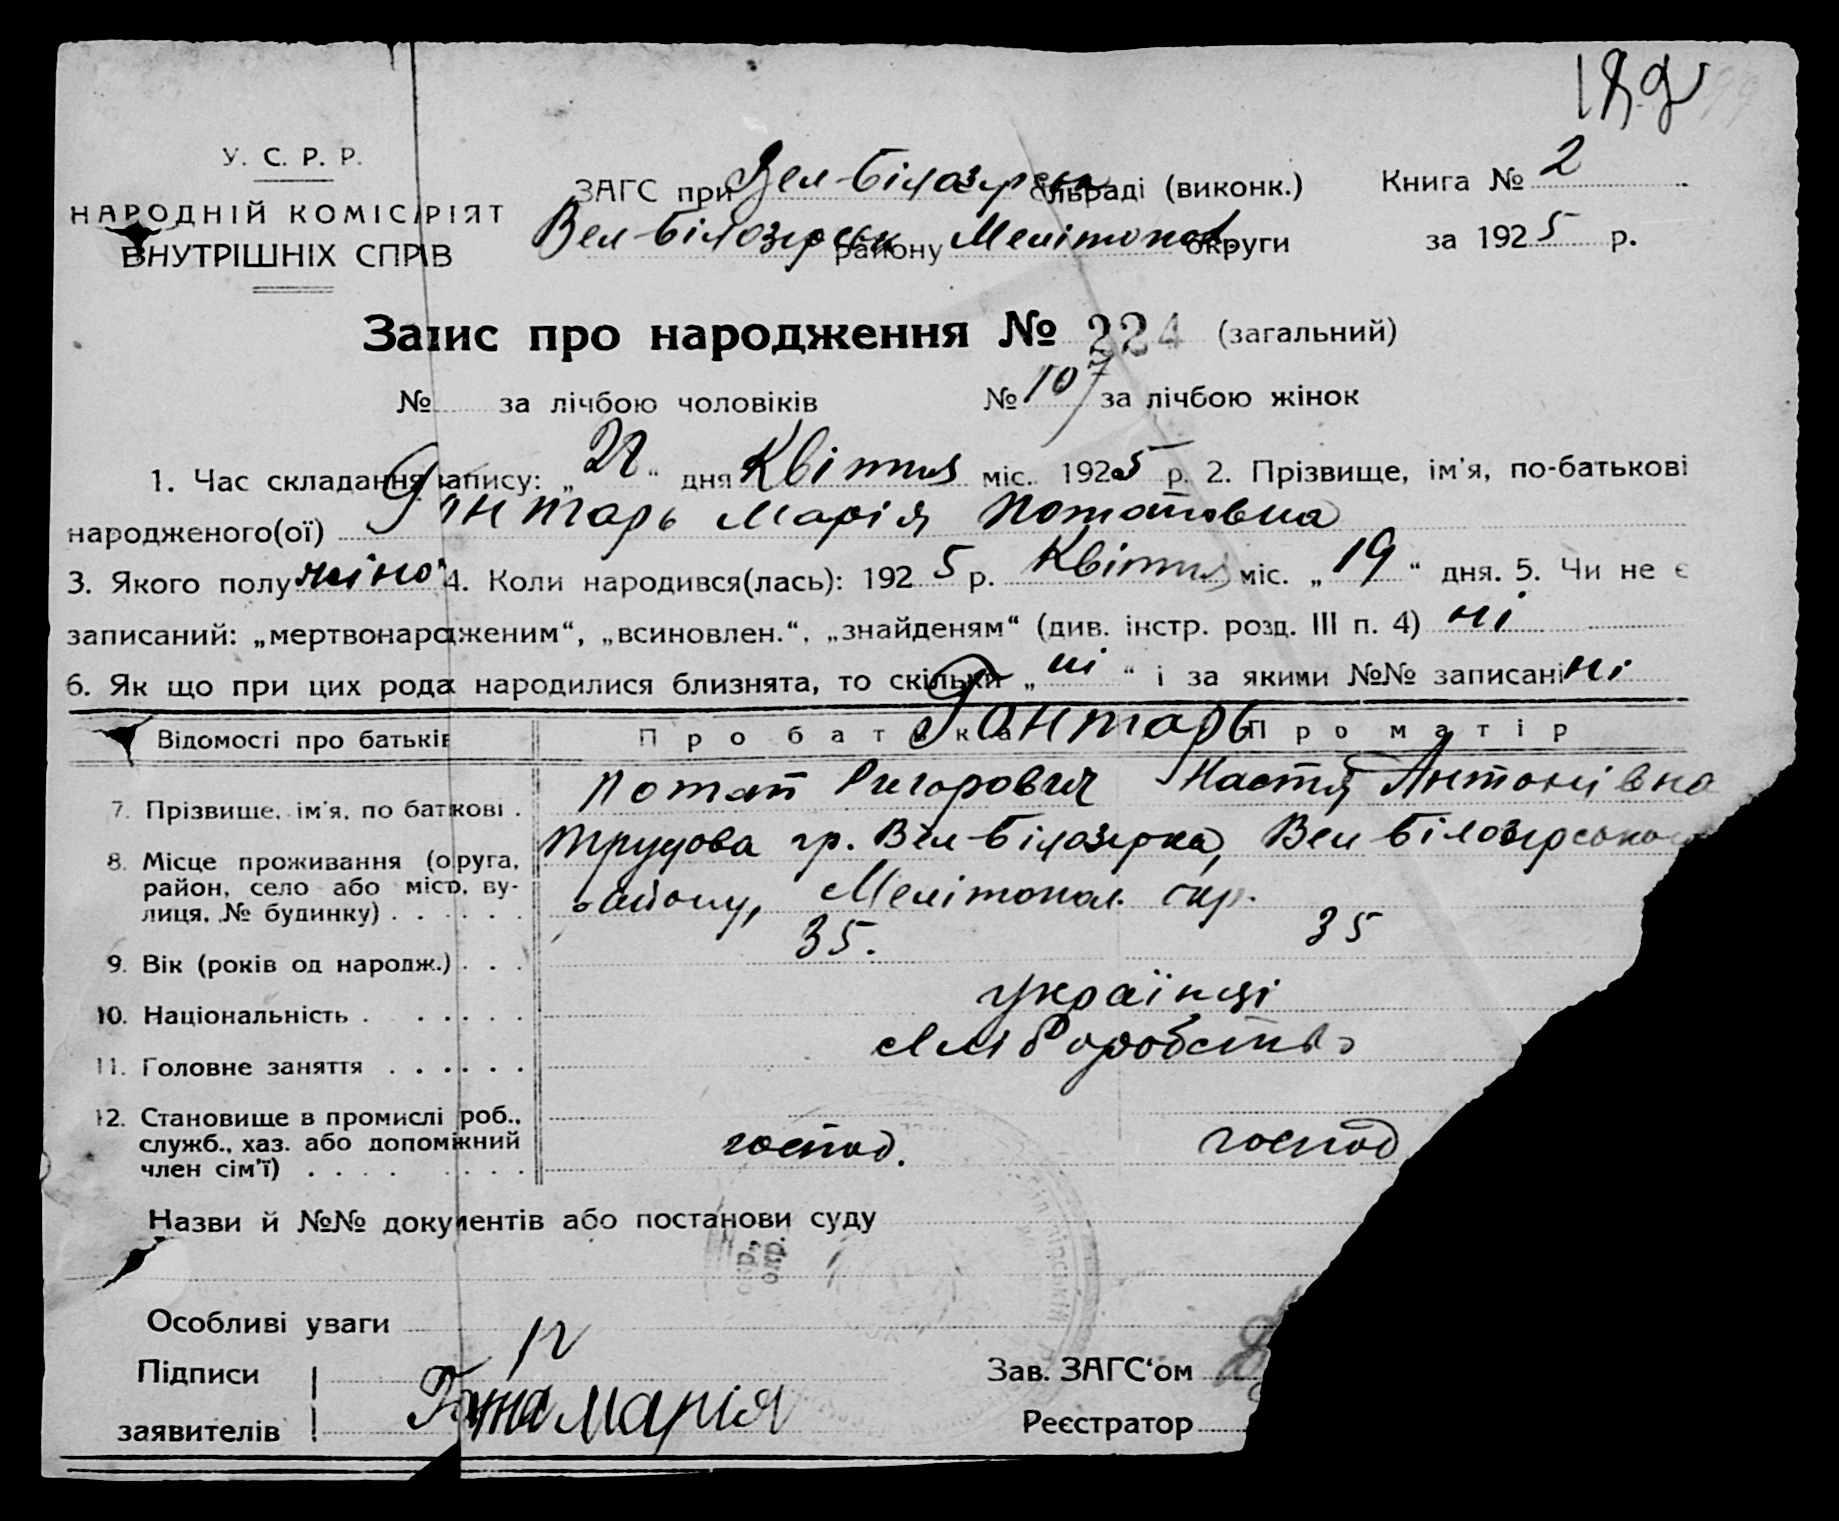 189
У. С. Р. Р.
НАРОДНІЙ КОМІСАРІЯТ
ВНУТРІШНІХ СПРАВ
ЗАГС при Вел-Білозірськ сільраді (виконк.)
Вел-Білозірськ району Мелітопол. округи
Книга № 2
за 1925 р.
Запис про народження № 224 (загальний)
№ за лічбою чоловіків № 107 за лічбою жінок
1. Час складання запису: „22“ дня Квітня міс. 1925 р. 2. Прізвище, ім'я, по-батькові
народженого(ої) Гонтарь Марія Потаповна
3. Якого полу жіно 4. Коли народився(лась): 1925 р. Квітня міс. „19“ дня. 5. Чи не є
записаний: „мертвонародженим“, „всиновлен.“, „знайденям“ (див. інстр. розд. III п. 4) ні
6. Як що при цих родах народилися близнята, то скільки „ні“ і за якими №№ записані ні
Відомості про батьків Про батька Про матір
Гонтарь
7. Прізвище, ім'я, по батькові . Потап Григорович Настя Антонівна
8. Місце проживання (округа, район, село або місто, вулиця, № будинку) . . . . . .
гр. Вел-Білозірка, Вел Білозірського
району, Мелітопол. окр.
9. Вік (років од народж.) . . . 35. 35
10. Національність . . . . . . українці
11. Головне заняття . . . . . . хліборобство
12. Становище в промислі (роб., служб., хаз. або допоміжний член сім'ї) . . . . . . . . господ. господ
Назви й №№ документів або постанови суду
Особливі уваги
Підписи
заявителів
Марія
Зав. ЗАГС'ом
Реєстратор